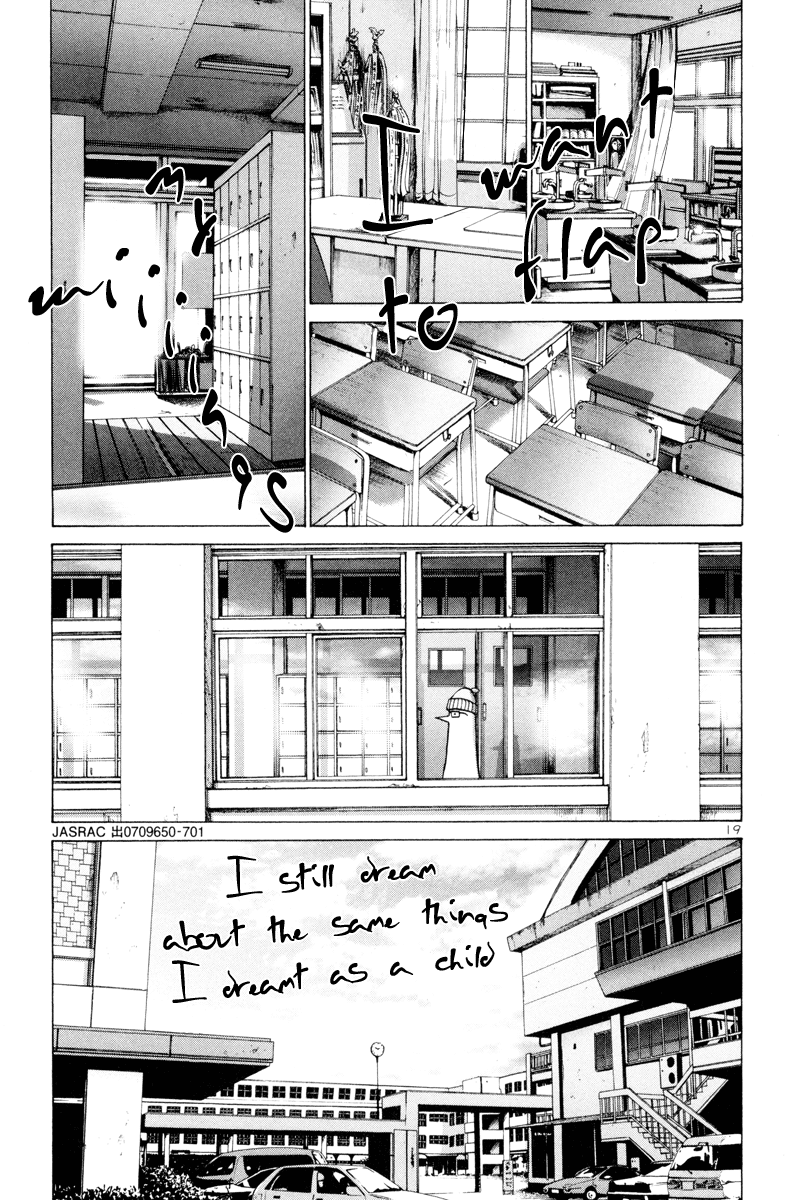 I want
to flap
my
wiiiings
JASRAC 出0709650-701
19
I still dream
about the same things
I dreamt as a child